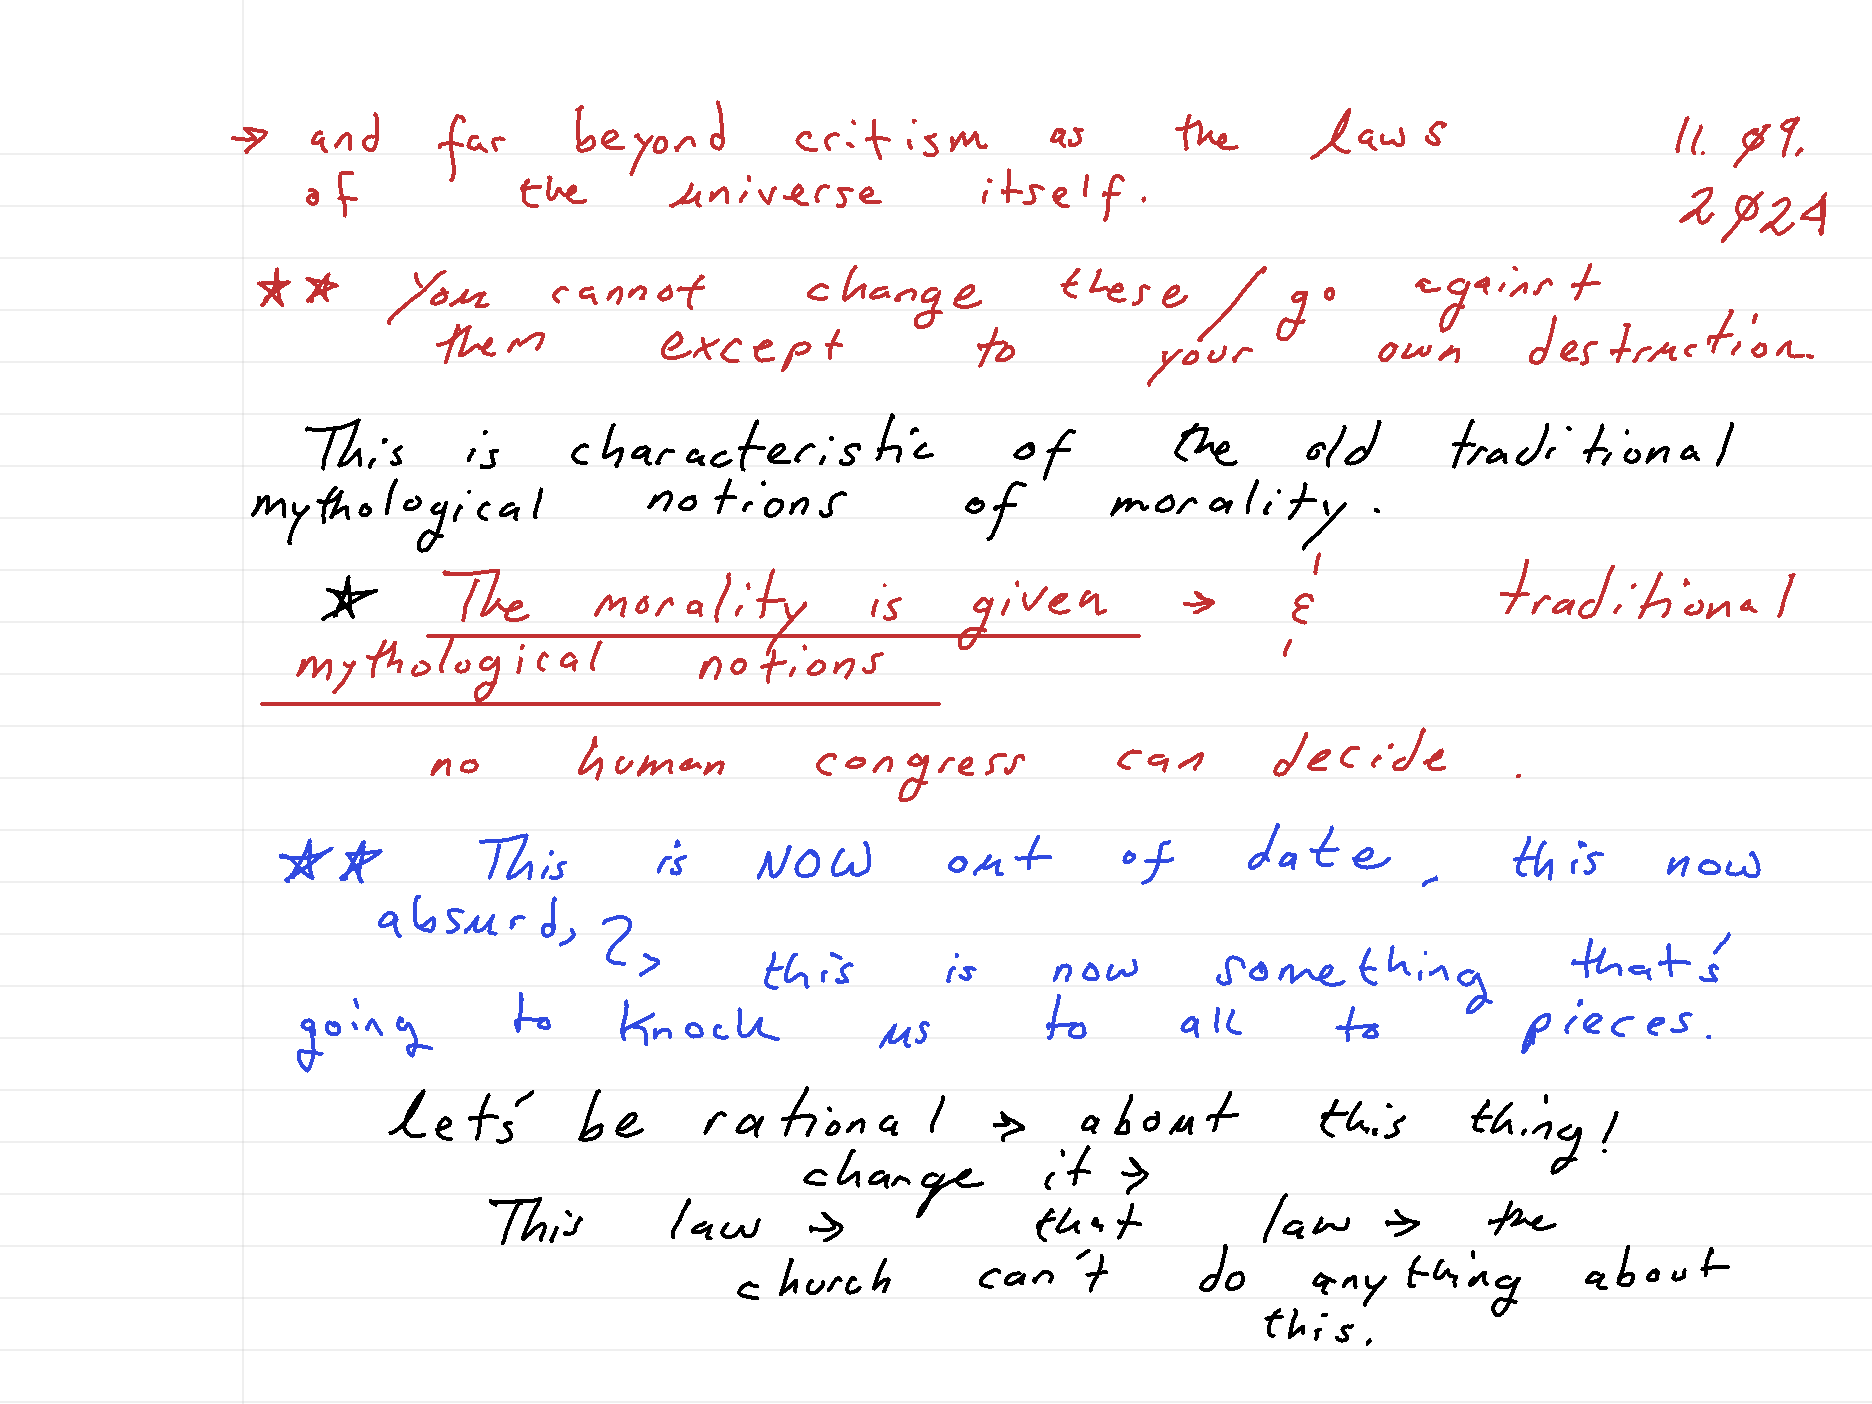 → and far beyond critism as the laws 11. Ø9.
of the universe itself. 2Ø24
☆☆ You cannot change these / go against
them except to your own destruction
This is characteristic of the old traditional
mythological notions of morality.
☆ The morality is given → & traditional
mythological notions
no human congress can decide.
☆☆ This is NOW out of date, this now
absurd,
→ this is now something that's
going to knock us to all to pieces.
let's be rational → about this thing!
change it →
This law → that law → the
church can't do anything about
this.